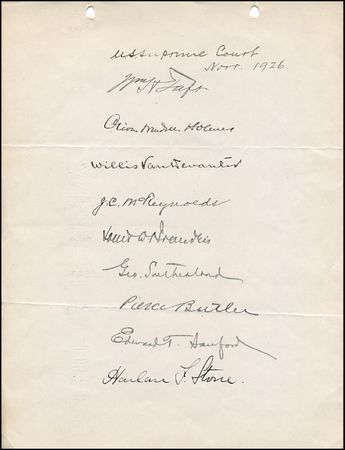 U.S. Supreme Court
Novr. 1926.
Wm H Taft
Oliver Wendell Holmes
Willis VanDevanter
J.C. McReynolds
Louis D Brandeis
Geo. Sutherland
Pierce Butler
Edward T. Sanford
Harlan F. Stone.